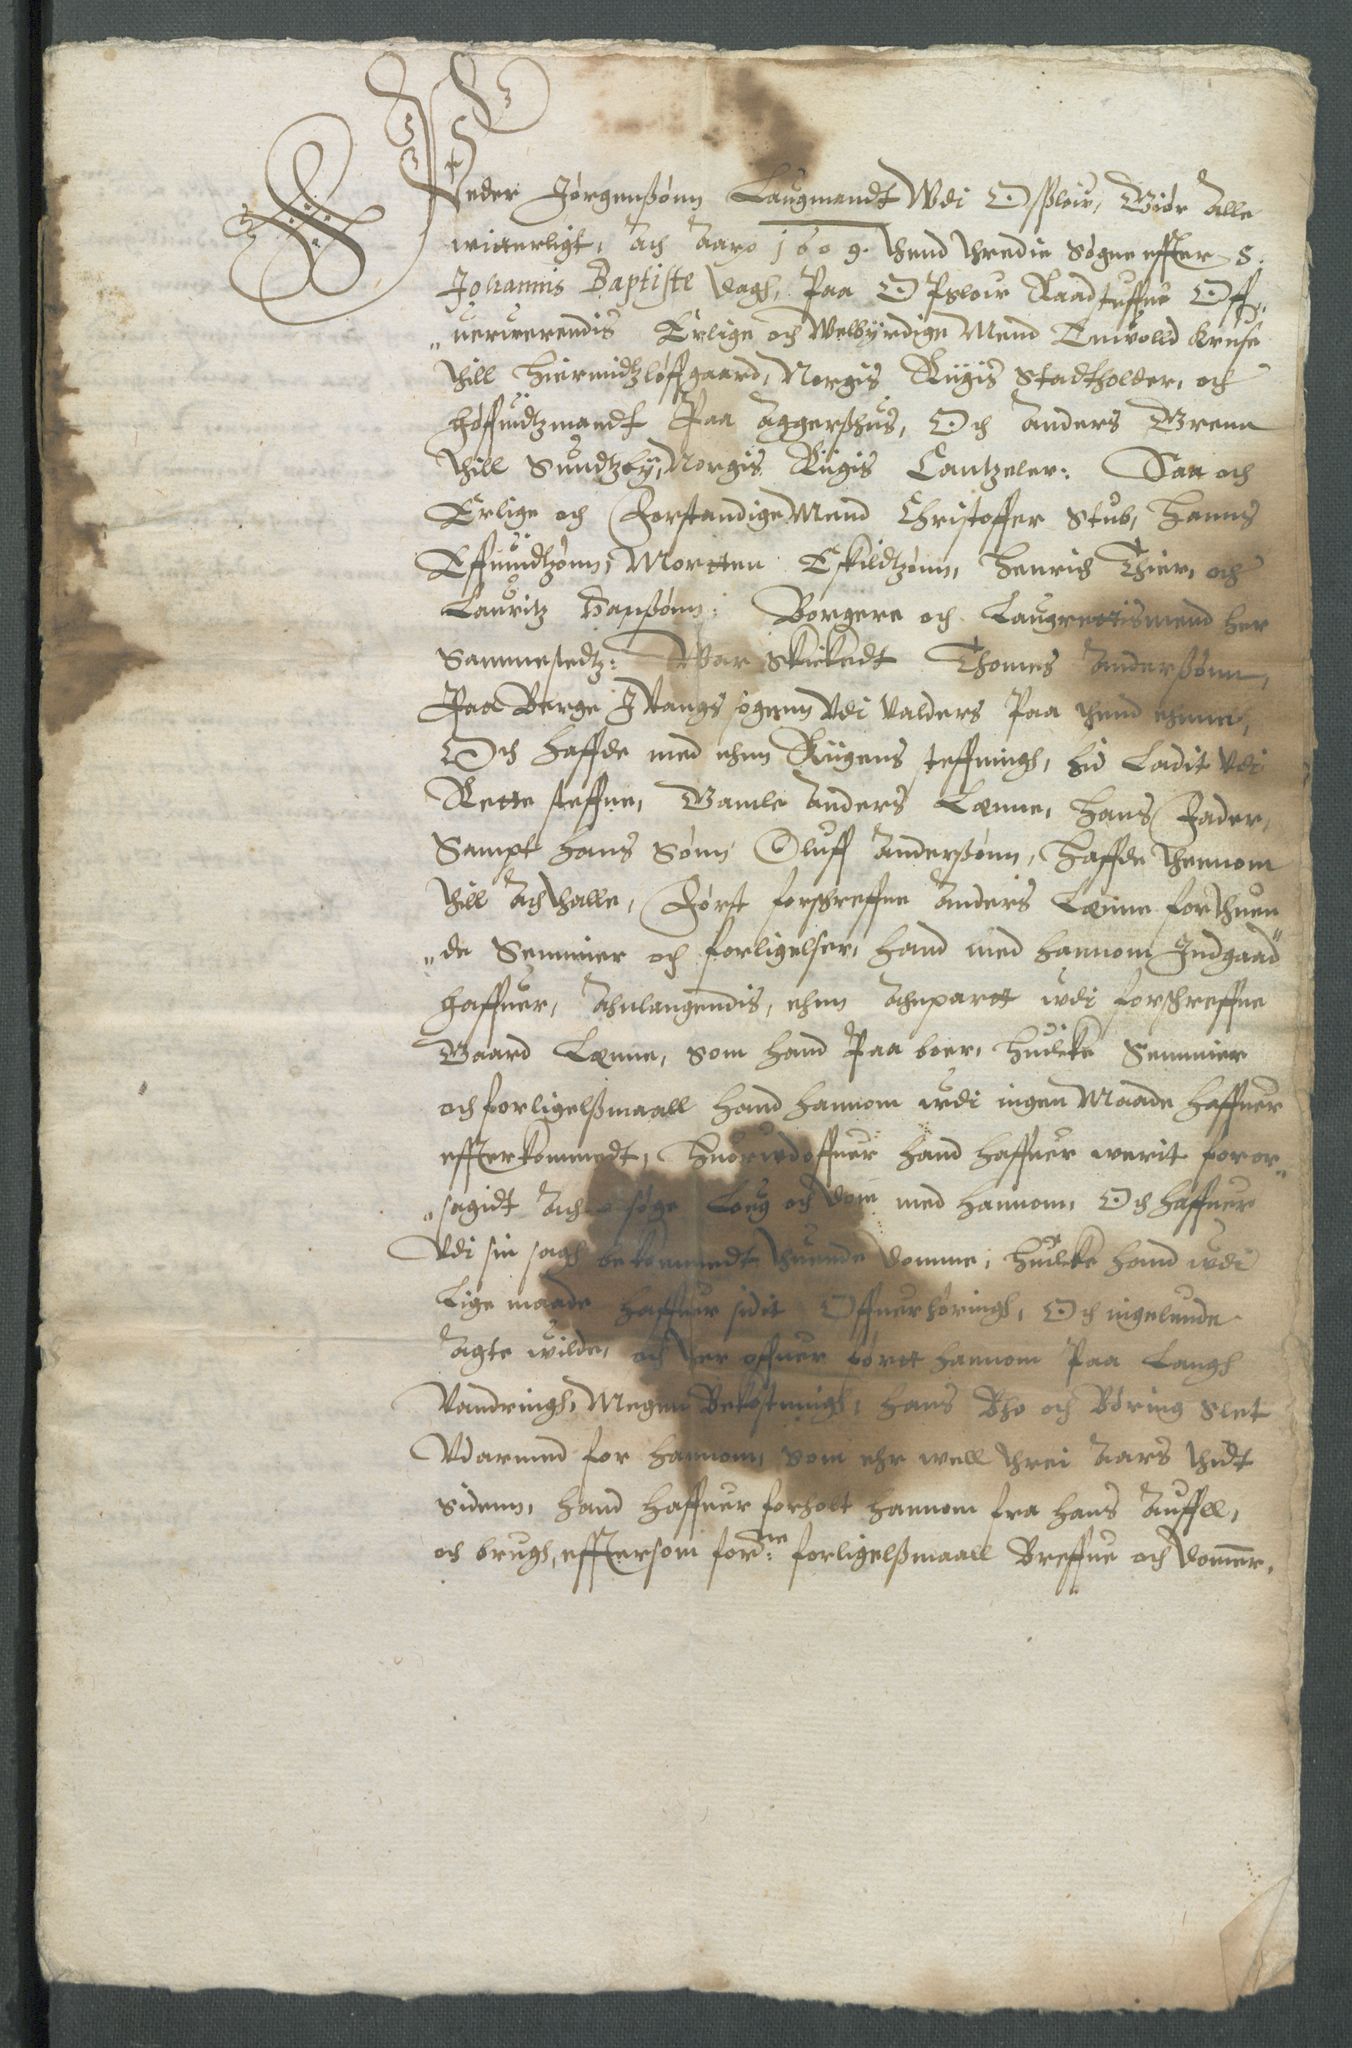 Peder Jørgenßønn Laugmandt Wdi Osloiv, Giør Alle
witterligt, Ach Aaro 1609. thend thredie Søgne effter S.
Johannis Baptiste dagh, Paa Opsloiv Raadstuffue Off„
„uerwerendis Erlige och Welbyrdige Mend Enuold Kruse
thill Hiermidtzløffgaard, Norgis Rigis Stadtholder, och
høffuidtzmandt Paa Aggerßhus, Och Anders Grenn
thill Sundtzby, Norgis Rigis Cantzeler: Saa och
Erlige och Forstandige Mend Christoffer Stub, Hanns
Effuindtzønn, Mortten Eskildtzønn, Henrich Thier, och
Lauritz Hanßønn: Borgere och Laugrettismend her
Sammestedtz: War skickedt Thomes Anderßønn,
Paa Berge I Wangs sogenn Vdi Valders Paa thend ehnne,
Och haffde med ehnn Rigens steffningh, hid Ladit Vdi
Rette steffne, Gamle Anders Lænne, hans Fader,
Sampt hans Sønn Oluff Anderßønn, Haffde thennom
thill Ach thalle, Først forschreffne Anders Lænne for thuen
„de Semmier och forligelser, hand med hannom Indgaad
haffuer, Ahnlangendis, ehnn Ahnpartt udi forschreffne
Gaard Lænne, som hand Paa boer, huilcke Semmier
och forligelßmaall hand hannom udi ingen Maade haffuer
effterkommedt, Huorudoffuer hand haffuer werit foror„
„sagidt Ach søge Loug och dom med hannom, Och haffuer
Vdi sin sagh bekommedt thuende domme, huilcke hand udi
Lige maade haffuer sidit Offuerhøringh, Och ingelunde
Agte wilde, och ther offuer ført hannom Paa Langh
Vandringh, Megen Bekostningh, hans Bho och Børing Slet
Vdarmed for hannom, som ehr well threi Aars thidt
sidenn, hand haffuer forholt hannom fra hans Auffll,
och brugh, efftersom fordne: forligelßmaall Breffue och dommer,